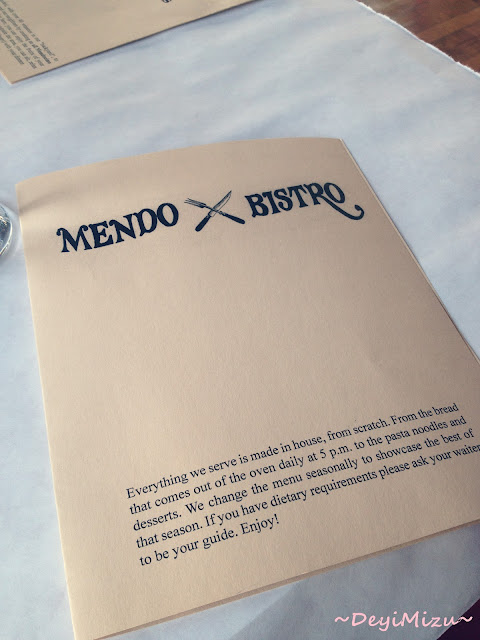 MENDO BISTRO
Everything we serve is made in house, from scratch. From the bread
that comes out of the oven daily at 5 p.m. to the pasta noodles and
desserts. We change the menu seasonally to showcase the best of
that season. If you have dietary requirements please ask your waiter
to be your guide. Enjoy!
~DeyiMizu~